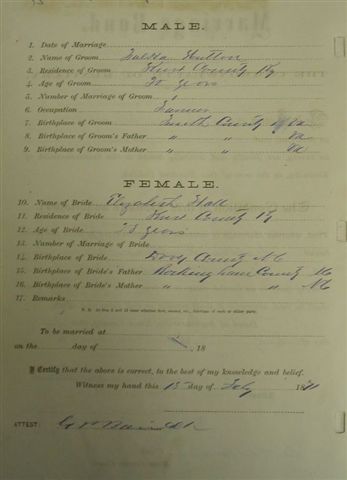 MALE.
1. Date of Marriage
2. Name of Groom Hutton
3. Residence of Groom County Ky
4. Age of Groom years
5. Number of Marriage of Groom 1
6. Occupation Farmer
7. Birthplace of Groom Smith County Va
8. Birthplace of Groom's Father " Va
9. Birthplace of Groom's Mother " " Va
FEMALE.
10. Name of Bride Elizabeth Hall
11. Residence of Bride County Ky
12. Age of Bride years
13. Number of Marriage of Bride
14. Birthplace of Bride County NC
15. Birthplace of Bride's Father Rockingham County NC
16. Birthplace of Bride's Mother " " NC
17. Remarks
To be married at
on the day of 18
I Certify that the above is correct, to the best of my knowledge and belief.
Witness my hand this 15 day of July 1871
ATTEST: